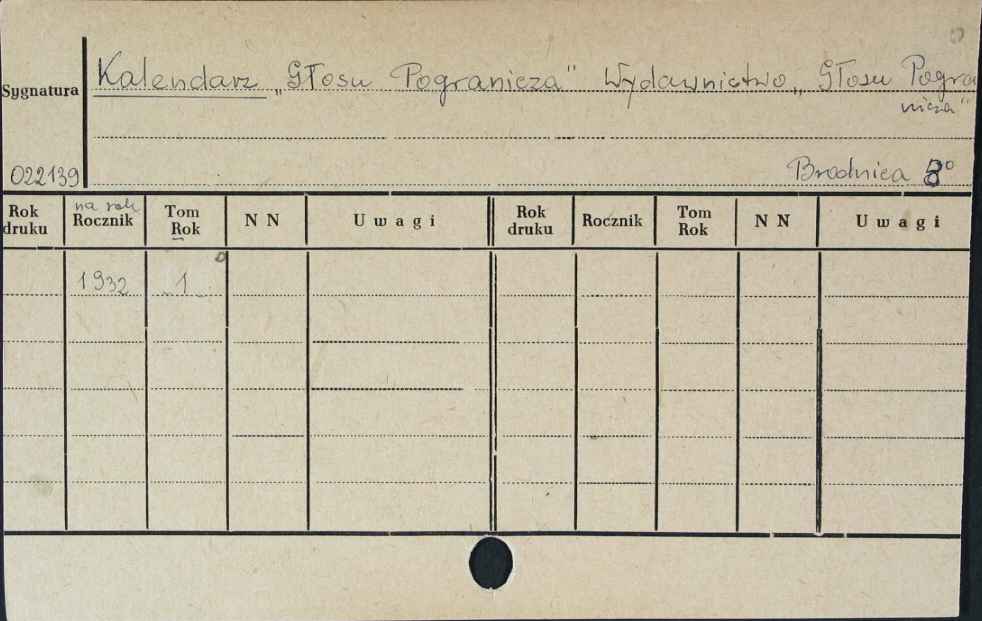 Kalendarz „Głosu Pogranicza" Wydawnictwo „Głosu Pogra
nicza"
Sygnatura
022139
Brodnica 8°
Rok druku na rok Rocznik Tom Rok N N Uwagi Rok druku Rocznik Tom Rok N N Uwagi
1932 1